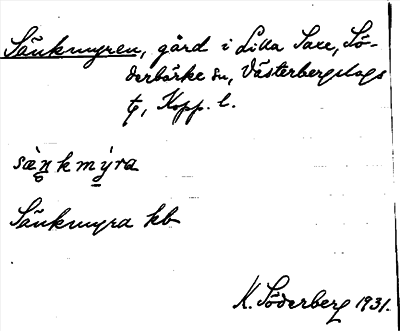 Sänkmyren, gård i Lilla Saxe, Sö-
derbärke sn, Västerbergslags
tg, Kopp. l.
sànkmýra
Sänkmyra kb
K. Söderberg 1931.